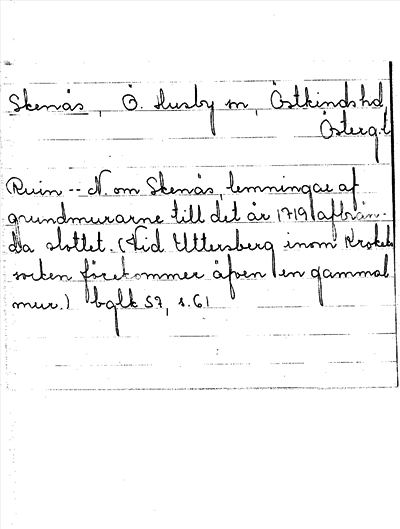 Skenäs, Ö. Husby sn, Östkinds hd,
Österg.l.
Ruin -- N. om Skenäs, lemningar af
grundmurarne till det år 1719 afbrän-
da slottet. (Vid Uttersberg inom Krokek
socken förekommer äfven en gammal
mur.) bglk 57, s. 61